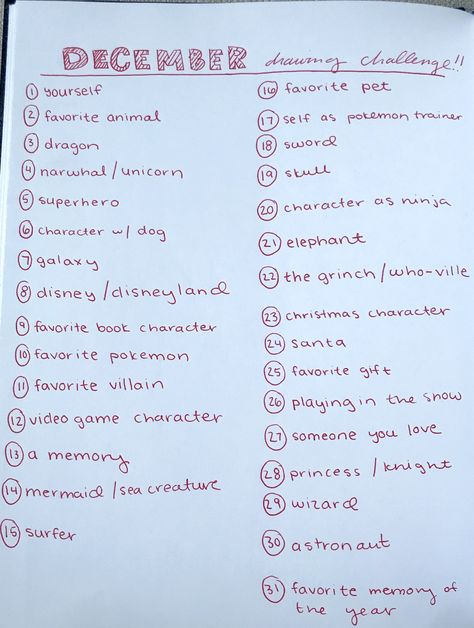 DECEMBER drawing challenge!!
1 yourself
2 favorite animal
3 dragon
4 narwhal/unicorn
5 superhero
6 character w/ dog
7 galaxy
8 disney/disneyland
9 favorite book character
10 favorite pokemon
11 favorite villain
12 video game character
13 a memory
14 mermaid/sea creature
15 surfer
16 favorite pet
17 self as pokemon trainer
18 sword
19 skull
20 character as ninja
21 elephant
22 the grinch/who-ville
23 christmas character
24 santa
25 favorite gift
26 playing in the snow
27 someone you love
28 princess/knight
29 wizard
30 astronaut
31 favorite memory of
the year